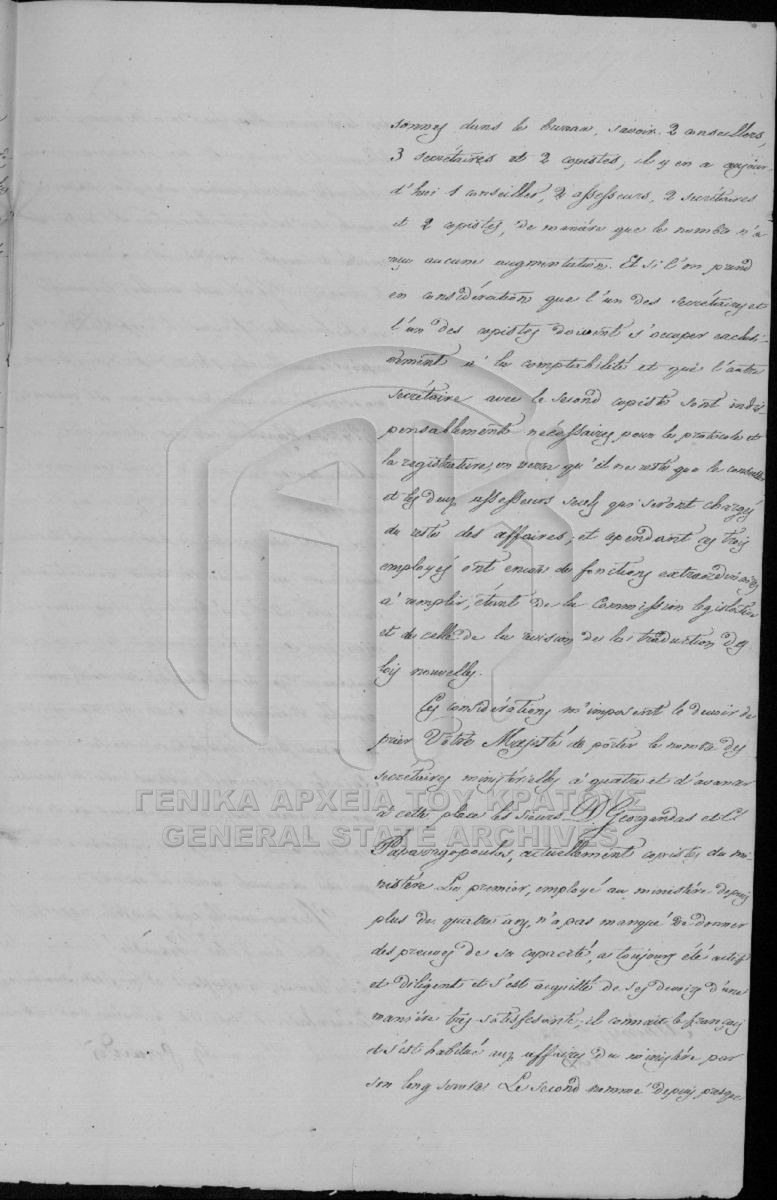 sonnes dans le bureau, savoir 2 conseillers,
3 secrétaires et 2 copistes, il y en a aujour-
d'hui 1 conseiller, 2 assesseurs, 2 secrétaires
et 2 copistes, de manière que le nombre n'a
reçu aucune augmentation. Et si l'on prend
en considération que l'un des secrétaires et
l'un des copistes doivent s'occuper exclusi-
vement à la comptabilité et que l'autre
secrétaire avec le second copiste sont indis-
pensablement nécessaires pour le protocole et
la registrature, on verra qu'il ne reste que le conseiller
et les deux assesseurs seuls qui seront chargés
du reste des affaires; et cependant ces trois
employés ont encore des fonctions extraordinaires
à remplir, étant de la Commission législative
et de celle de la revision de la traduction des
lois nouvelles.
Ces considérations m'imposent le devoir de
prier Votre Majesté de porter le nombre des
secrétaires ministérielles à quatre et d'avancer
à cette place les sieurs D. Georgandas et C.
Paparrigopoulos, actuellement copistes du mi-
nistère. Le premier, employé au ministère depuis
plus de quatre ans, n'a pas manqué de donner
des preuves de sa capacité, a toujours été actif
et diligent et s'est acquitté de ses devoirs d'une
manière très satisfesante; il connait le français
et s'est habitué aux affaires du ministère par
son long service. Le second nommé depuis presque
ΓΕΝΙΚΑ ΑΡΧΕΙΑ ΤΟΥ ΚΡΑΤΟΥΣ
GENERAL STATE ARCHIVES